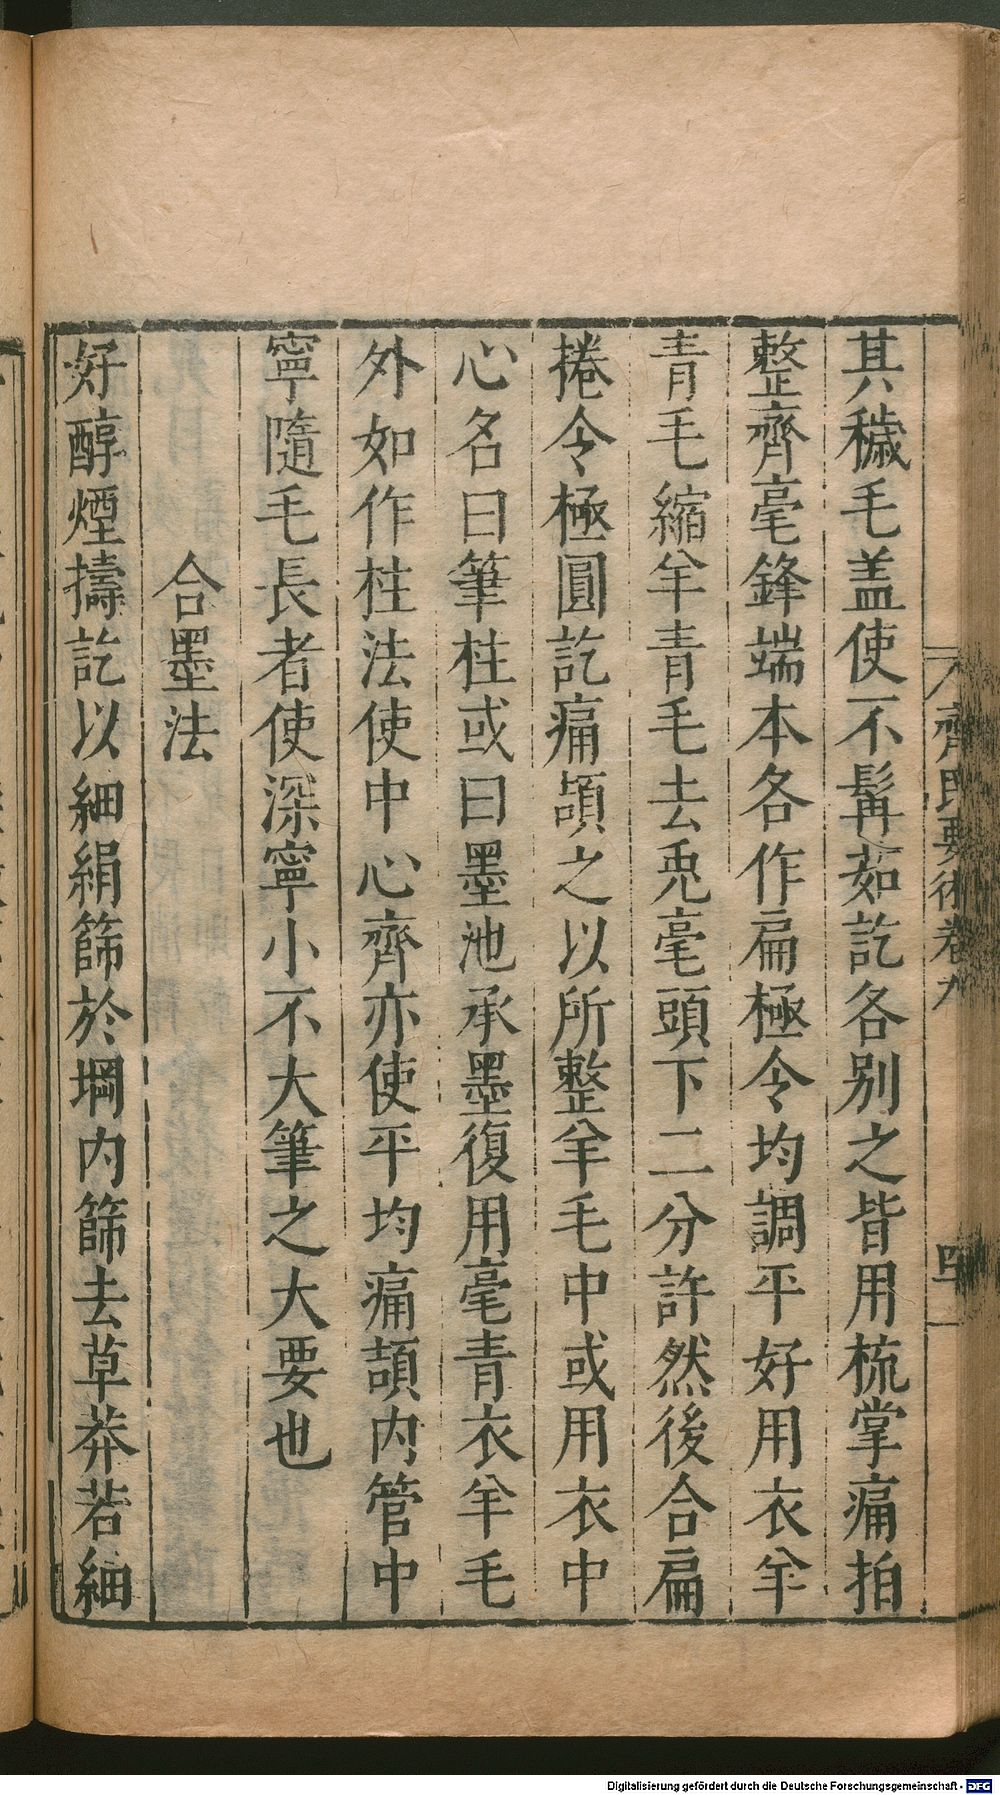 其穢毛盖使不髯茹訖各别之皆用梳掌痛拍
整齊毫鋒端本各作扁極令均調平好用衣羊
青毛縮羊青毛去兎毫頭下二分許然後合扁
捲令極圓訖痛頡之以所整羊毛中或用衣中
心名曰筆柱或曰墨池承墨復用毫青衣羊毛
外如作柱法使中心齊亦使平均痛頡内管中
寧隨毛長者使深寧小不大筆之大要也
合墨法
好醇煙擣訖以細絹篩於堈内篩去草莽若細
齊民要術卷九
Digitalisierung gefördert durch die Deutsche Forschungsgemeinschaft - DFG